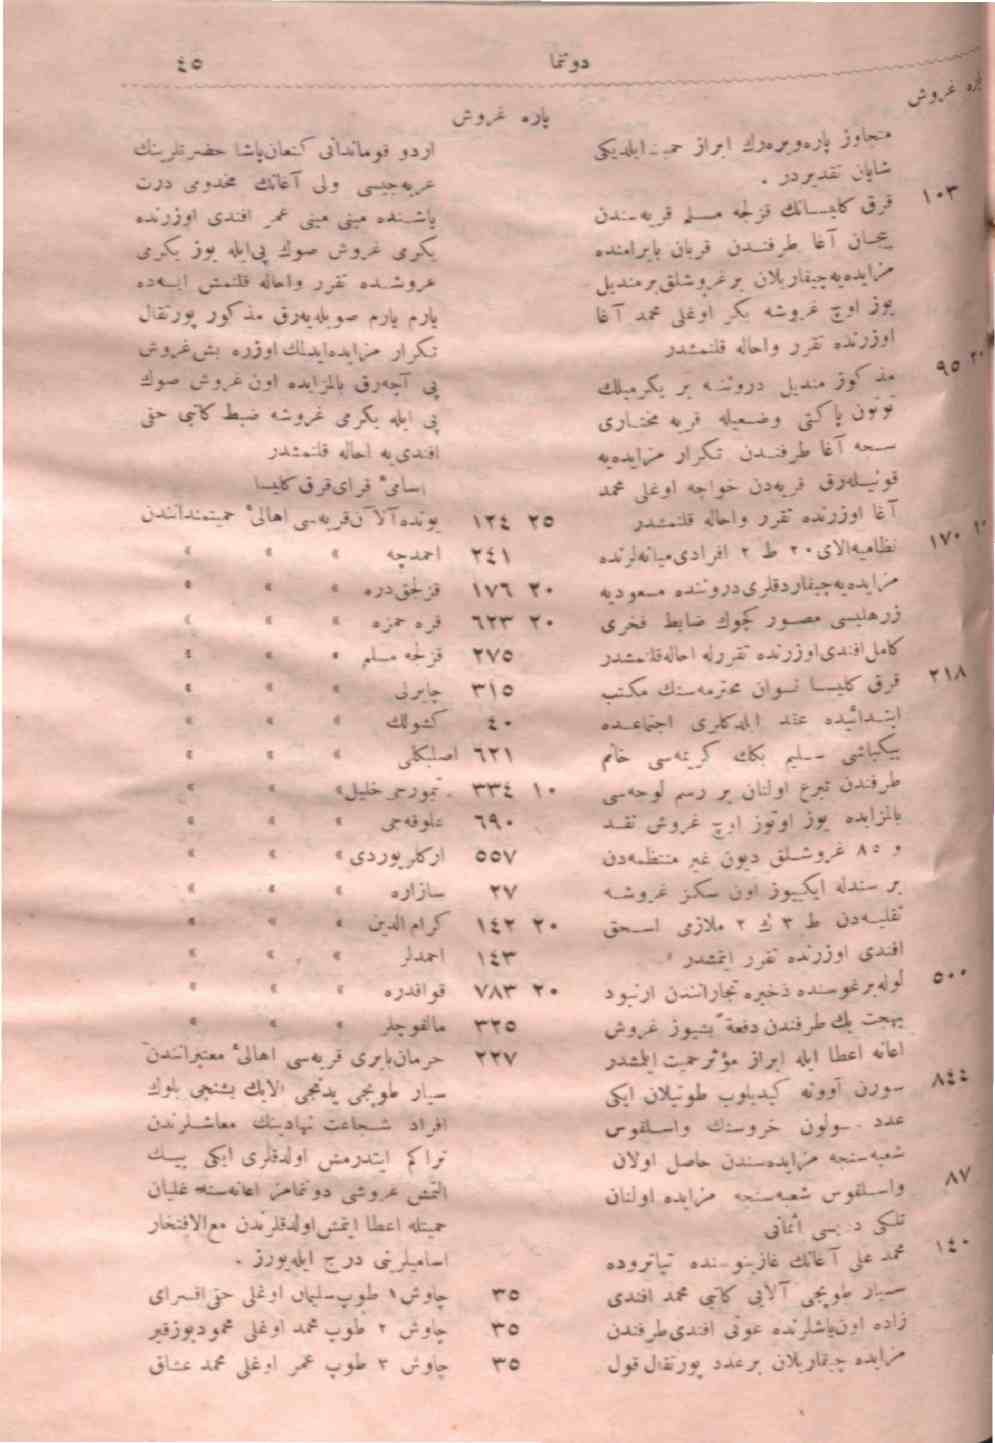 دوننما ٤٥
پاره غروش
متجاوز پاره ويره‌رك ابراز حميت ايلديكى
شايان تقديردر .
١٠٣ قرق كليسانك قزلجه مسلم قريه‌سندن
آغا طرفندن قربان بايرامنده
مزايده‌يه چيقاريلان بر غروشلق بر منديل
يوز اوچ غروشه بكر اوغلى محمد آغا
اوزرنده تقرر واحاله قلنمشدر
٩٥ ٢٠ مذكور منديل دروننه بر يكرميلك
توتون پاكتى وضعيله قريه مختارى
آغا طرفندن تكرار مزايده‌يه
قونيله‌رق قريه‌دن خواجه اوغلى محمد
آغا اوزرنده تقرر واحاله قلنمشدر
١٧٠ نظاميه آلاى ٢٠ ط ٢ افرادى ميانه‌لرنده
مزايده‌يه چيقاردقلرى دروننده مسعوديه
زرهليسى مصور كچوك ضابط فخرى
كامل افندى اوزرنده تقررله احاله قلنمشدر
٢١٨ قرق كليسا نسوان محترمه‌سنك مكتب
ابتدائيده عقد ايلدكلرى اجتماعده
بيكباشى سليم بكك كريمه‌سى خانم
طرفندن تبرع اولنان بر رسم لوحه‌سى
بالمزايده يوز اوتوز اوچ غروش نقد
و ٨٥ غروشلق ديون غير منتظمه‌دن
بر سندله ايكييوز اون سكز غروشه
نقليه‌دن ط ٣ ك ٢ ملازمى اسحق
افندى اوزرنده تقرر ايتمشدر .
٥٠٠ لوله‌برغوسنده ذخيره تجارانندن ارنبود
بهجت بك طرفندن دفعةً بشيوز غروش
اعانه اعطا ايله ابراز مؤثر حميت ايلمشدر
٨٤٤ سورن آوونه كيديلوب طوتيلان ايكى
عدد سولون خروسنك واسلفوس
شعبه‌سنجه مزايده‌سندن حاصل اولان
٨٧ واسلفوس شعبه‌سنجه مزايده اولنان
تلكى دريسى اثمانى
١٤٠ محمد على آغانك غازينوسنده تياتروده
سيار طوپجى آلايى كاتبى محمد افندى
زاده اون ياشلرنده عونى افندى طرفندن
مزايده چيقاريلان بر عدد پورتقال قول
پاره غروش
اردو قوماندانى كنعان پاشا حضرتلرينك
عربه‌جيسى ولى آغانك مخدومى درت
ياشنده مينى مينى عمر افندى اوزرنده
يكرمى غروش صوك پى ايله يوز يكرمى
غروشده تقرر واحاله قلنمش ايسه‌ده
يارم يارم صويله‌يه‌رق مذكور پورتقال
تكرار مزايده ايدلمك اوزره بش غروش
پى آچه‌رق بالمزايده اون غروش صوك
پى ايله يكرمى غروشه ضبط كاتبى حقى
افندى‌يه احاله قلنمشدر
اسامىء قراى قرق كليسا
٢٥ ١٢٤ قريه‌سى اهالىء حميتمندانندن
٢٤١ احمدجه » » »
٢٠ ١٧٦ قزلجق دره » » »
٢٠ ٦٢٣ قره حمزه » » »
٢٧٥ قزلجه مسلم » » »
٣١٥ چايرلى » » »
٤٠ كشولك » » »
٦٢١ اصلبكلى » » »
١٠ ٣٣٤ خليل » » »
٦٩٠ علوفه‌جى » » »
٥٥٧ اركلر يوردى » » »
٢٧ سازاره » » »
٢٠ ١٤٢ كرام الدين » » »
١٤٣ احمدلر » » »
٢٠ ٧٨٣ قوافدره » » »
٣٢٥ مالقوچلر » » »
٢٢٧ حرمان بايرى قريه‌سى اهالىء معتبرانندن
سيار طوپجى يدنجى آلاينك بشنجى بلوك
افراد شجاعت نهادينك معاشلرندن
تراكم ايتدرمش اولدقلرى ايكى بيك
التمش غروشى دونمامز اعانه‌سنه غليان
حميتله اعطا ايتمش اولدقلرندن مع الافتخار
اساميلرينى درج ايله‌يورز .
٣٥ چاوش ١ طوپ سليمان اوغلى حقى افسراى
٣٥ چاوش ٢ طوپ محمد اوغلى محمود بوزقير
٣٥ چاوش ٣ طوپ عمر اوغلى محمد عشاق